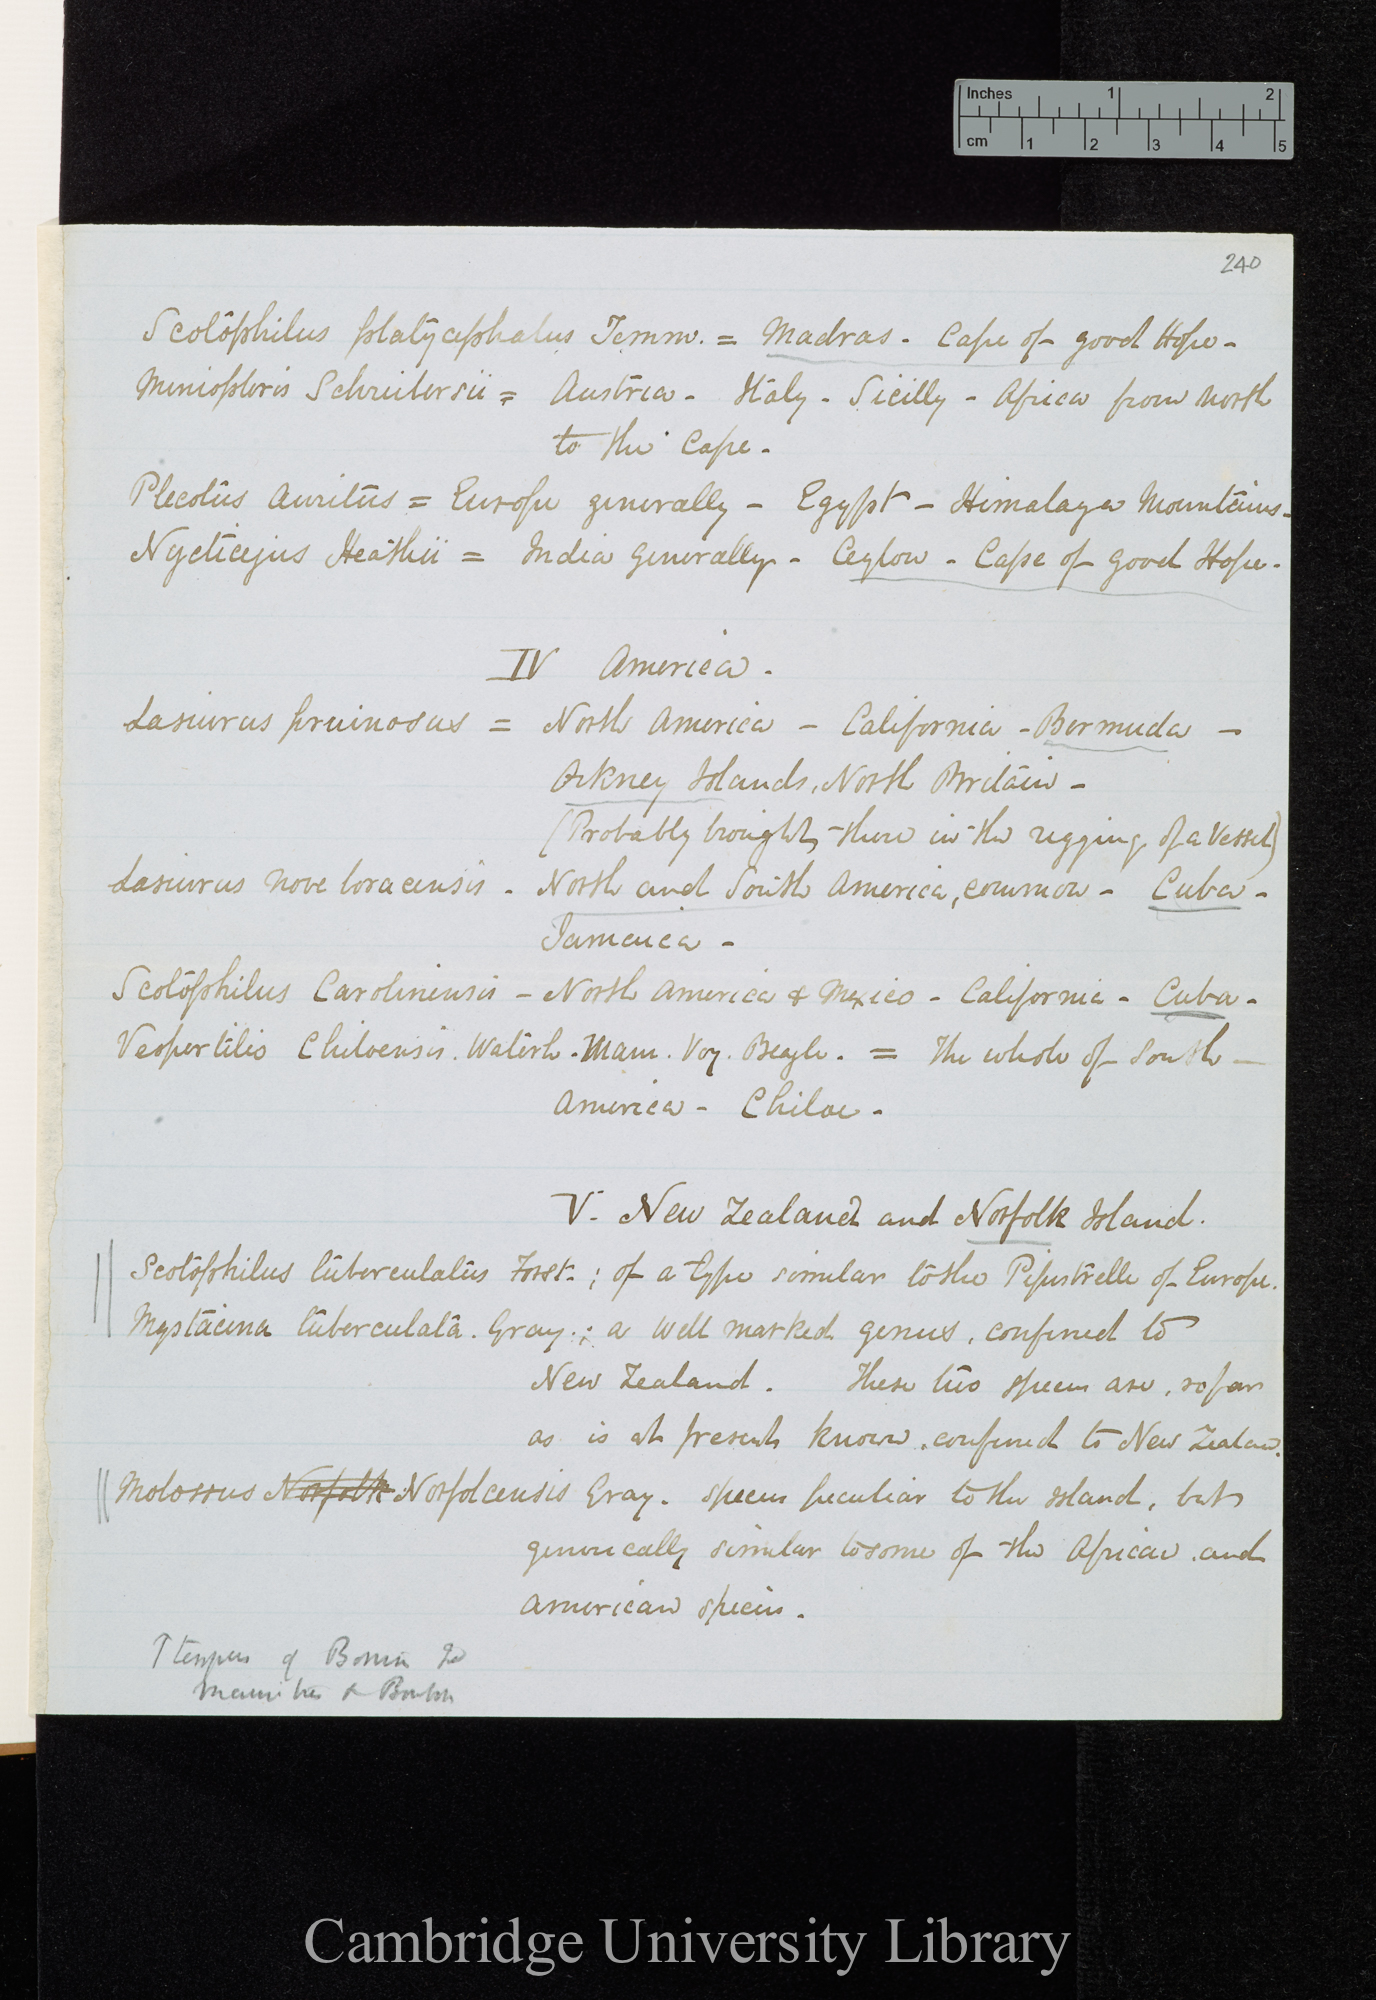 Inches 1 2
cm 1 2 3 4 5
240
Scotophilus platycephalus Temm. = Madras - Cape of good Hope -
Miniopteris Schreibersii = Austria - Italy - Sicilly - Africa from North
to the Cape -
Plecotus Auritus = Europe generally - Egypt - Himalaya Mountains -
Nycticejus Heathii = India generally - Ceylon - Cape of good Hope -
IV America -
Lasiurus pruinosus = North America - California - Bermuda -
Orkney Islands, North Britain -
(Probably brought there in the rigging of a Vessel)
Lasiurus nove boracensis - North and South America, common - Cuba -
Jamaica -
Scotophilus Carolinensis - North America & Mexico - California - Cuba -
Vespertilio Chiloensis. Waterh. Mam. Voy. Beagle. = The whole of South -
America - Chiloe -
V. New Zealand and Norfolk Island.
Scotophilus tuberculatus Forst. ; of a type similar to the Pipistrelle of Europe.
Mystacina tuberculata. Gray. ; a well marked genus, confined to
New Zealand. These two species are, so far
as is at present known, confined to New Zealan.
Molossus Norfolk Norfolcensis Gray. species peculiar to the Island, but
generically similar to some of the African and
American species.
Pteropus of Bonin &c
Mauritius & Bourbon
Cambridge University Library